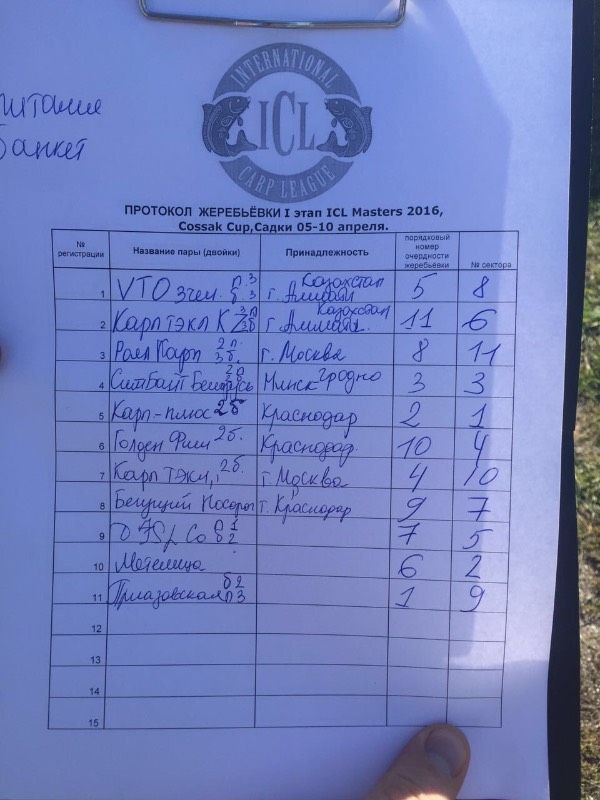 питание
банкет
INTERNATIONAL
ICL
CARP LEAGUE
ПРОТОКОЛ ЖЕРЕБЬЁВКИ I этап ICL Masters 2016,
Cossak Cup,Садки 05-10 апреля.
№ регистрации Название пары (двойки) Принадлежность порядковый номер очередности жеребьёвки № сектора
1 VTO 3чел. п.3 б.3 Казахстан г. Алматы 5 8
2 Карп тэкл К Казахстан г Алматы. 11 6
3 Роял Карп 2п. 3б. г. Москва 8 11
4 СитБайт Беларусь Минск Гродно 3 3
5 Карп-плюс 2б Краснодар 2 1
6 Голден Фиш 2б. Краснодар. 10 4
7 Карп Тэкл, 2б. г. Москва 4 10
8 Бегущий Носорог г. Краснодар 9 7
9 7 5
10 Метелица 6 2
11 Приазовская б2 п3 1 9
12
13
14
15